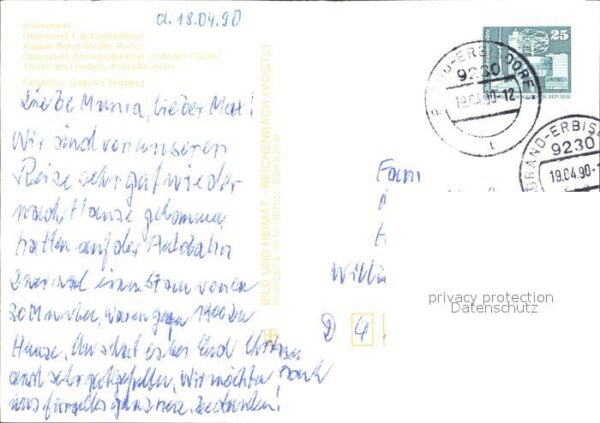 d. 18.04.90
Untermarkt
Obermarkt 1, Schönlebehaus
August-Bebel-Straße, Portal
Obermarkt, Brunnendenkmal „Otto der Reiche"
Straße des Friedens, Kristallbrunnen
Fotos:
Freiberg
Liebe Mama, lieber Max!
Wir sind von unseren
Reise sehr gut wieder
nach Hause gekommen,
hatten auf der Autobahn
einen Stau von ca
30 Minuten, waren gegen 19 00 Zu
Hause. Uns hat es bei Euch
und sehr gut gefallen, Wir möchten
uns für alles ganz bedanken!
BILD UND HEIMAT REICHENBACH (VOGTL)
25
BRAND-ERBISDORF
9230
19.04.90-12
t
BRAND-ERBIS
9230
19.04.90-1
Fam
Willi
D 4
privacy protection
Datenschutz